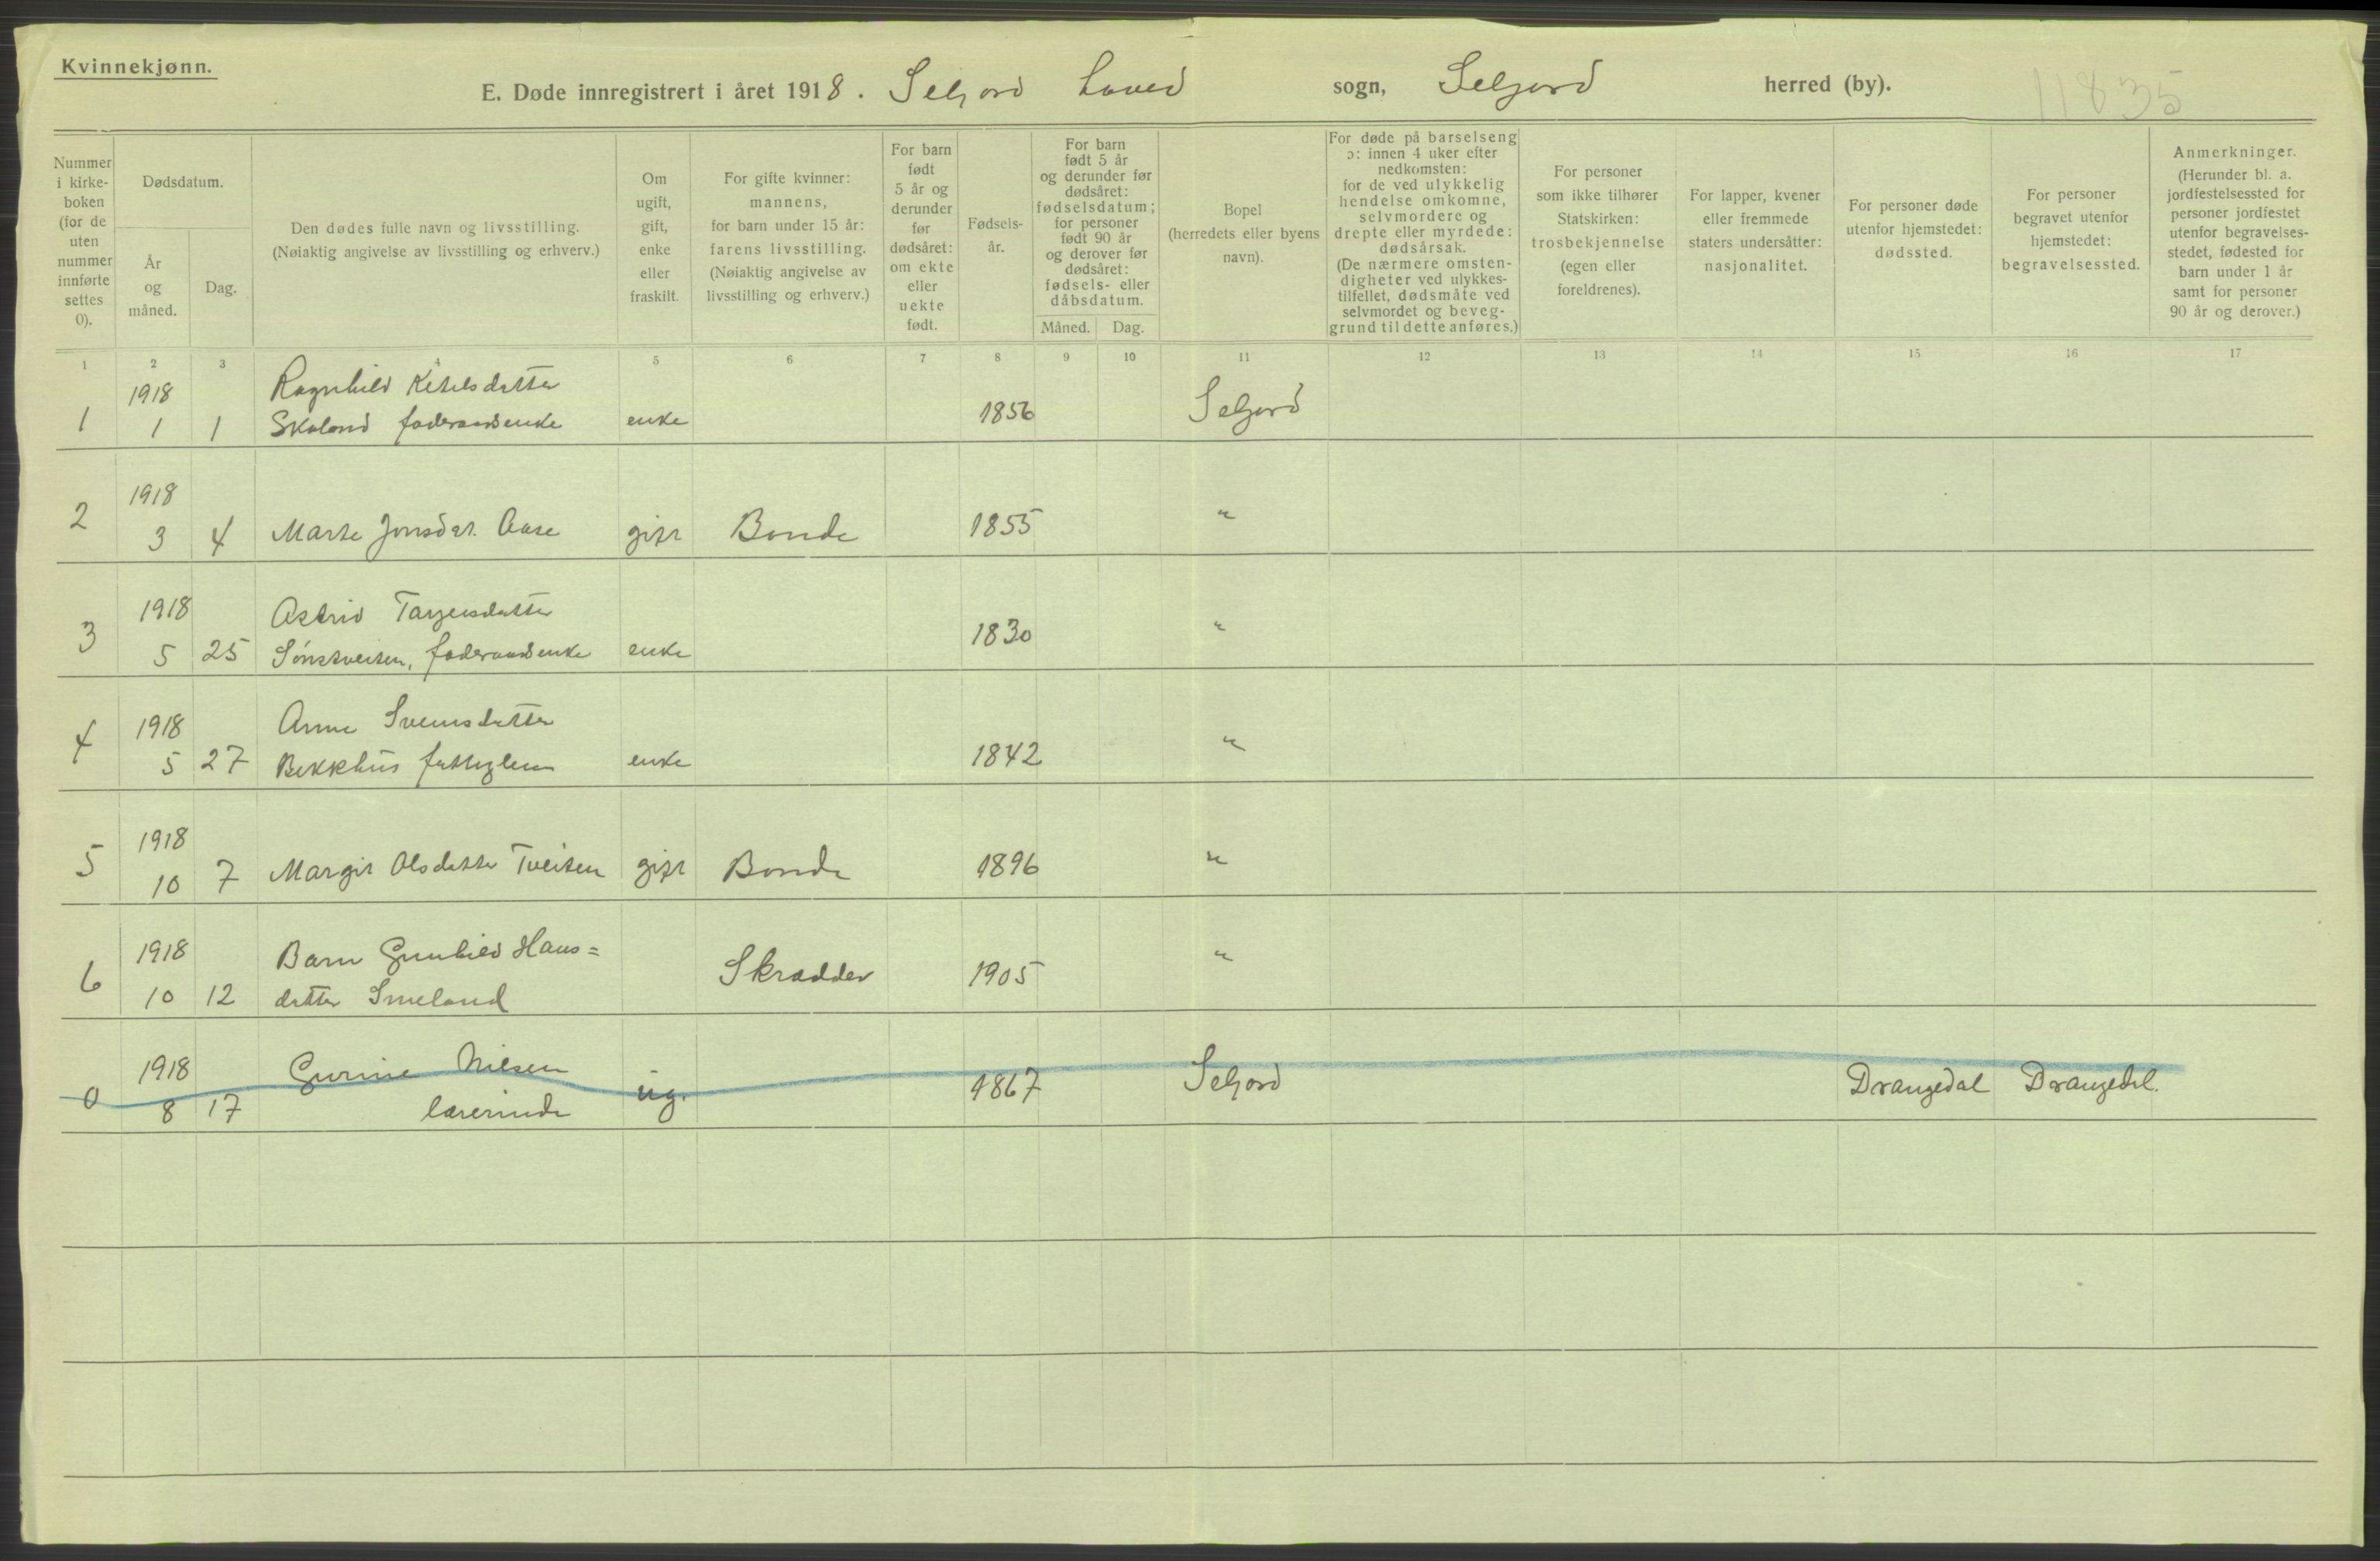 Kvinnekjønn.
E. Døde innregistrert i året 1918. Seljord hoved sogn, Seljord herred (by).
11835
Nummer i kirke-boken (for de uten nummer innførte settes 0).
Dødsdatum.
År og måned.
Dag.
Den dødes fulle navn og livsstilling.
(Nøiaktig angivelse av livsstilling og erhverv.)
Om ugift, gift, enke eller fraskilt.
For gifte kvinner: mannens, for barn under 15 år: farens livsstilling. (Nøiaktig angivelse av livsstilling og erhverv.)
For barn født 5 år og derunder før dødsåret: om ekte eller uekte født.
Fødsels-år.
For barn født 5 år og derunder før dødsåret: fødselsdatum; for personer født 90 år og derover før dødsåret: fødsels- eller dåbsdatum.
Måned. Dag.
Bopel (herredets eller byens navn).
For døde på barselseng ɔ: innen 4 uker efter nedkomsten: for de ved ulykkelig hendelse omkomne, selvmordere og drepte eller myrdede: dødsårsak. (De nærmere omsten-digheter ved ulykkes-tilfellet, dødsmåte ved selvmordet og beveg-grund til dette anføres.)
For personer som ikke tilhører Statskirken: trosbekjennelse (egen eller foreldrenes).
For lapper, kvener eller fremmede staters undersåtter: nasjonalitet.
For personer døde utenfor hjemstedet: dødssted.
For personer begravet utenfor hjemstedet: begravelsessted.
Anmerkninger. (Herunder bl. a. jordfestelsessted for personer jordfestet utenfor begravelses-stedet, fødested for barn under 1 år samt for personer 90 år og derover.)
1 2 3 4 5 6 7 8 9 10 11 12 13 14 15 16 17
1918 Ragnhild Ketelsdatter
1 1 1 Skoland foderaadsenke enke 1856 Seljord
1918
2 3 4 Marte Jonsdat. Aase gift Bonde 1855 "
1918 Astrid Tarjeisdatter
3 5 25 Sønstveiten, foderaadsenke enke 1830 "
1918 Anne Sveinsdatter
4 5 27 Bekkhus fattiglem enke 1842 "
1918
5 10 7 Margit Olsdatter Tveiten gift Bonde 1896 "
1918 Barn Gunhild Hans=
6 10 12 datter Smeland Skrædder 1905 "
1918 Gurine Nilsen
0 8 17 lærerinde ug. 1867 Seljord Drangedal Drangedal.